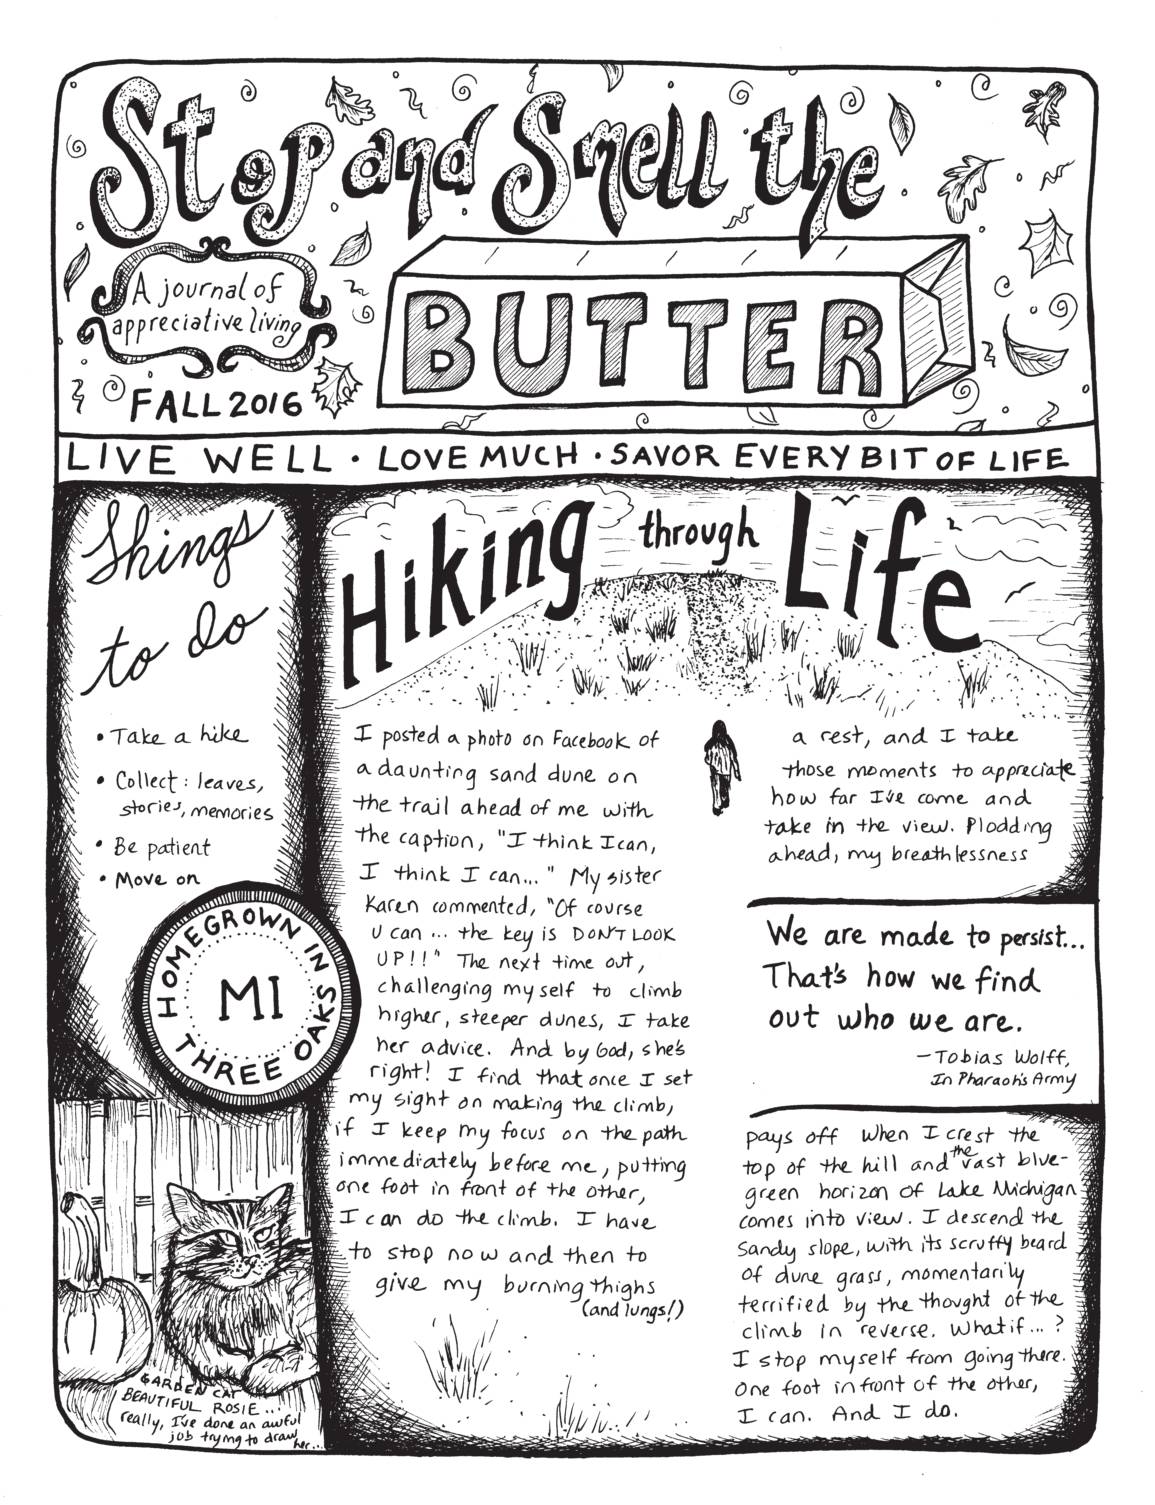 Stop and Smell the
BUTTER
A journal of
appreciative living
FALL 2016
LIVE WELL · LOVE MUCH · SAVOR EVERY BIT OF LIFE
Things
to do
• Take a hike
• Collect: leaves,
stories, memories
• Be patient
• Move on
HOMEGROWN IN
MI
THREE OAKS
GARDEN CAT
BEAUTIFUL ROSIE...
really, I've done an awful
job trying to draw
her...
Hiking through Life
I posted a photo on Facebook of
a daunting sand dune on
the trail ahead of me with
the caption, "I think I can,
I think I can..." My sister
Karen commented, "Of course
u can ... the key is DON'T LOOK
UP!!" The next time out,
challenging myself to climb
higher, steeper dunes, I take
her advice. And by God, she's
right! I find that once I set
my sight on making the climb,
if I keep my focus on the path
immediately before me, putting
one foot in front of the other,
I can do the climb. I have
to stop now and then to
give my burning thighs
(and lungs!)
a rest, and I take
those moments to appreciate
how far I've come and
take in the view. Plodding
ahead, my breathlessness
We are made to persist...
That's how we find
out who we are.
-Tobias Wolff,
In Pharaoh's Army
pays off when I crest the
top of the hill and the vast blue-
green horizon of Lake Michigan
comes into view. I descend the
sandy slope, with its scruffy beard
of dune grass, momentarily
terrified by the thought of the
climb in reverse. What if...?
I stop myself from going there.
One foot in front of the other,
I can. And I do.